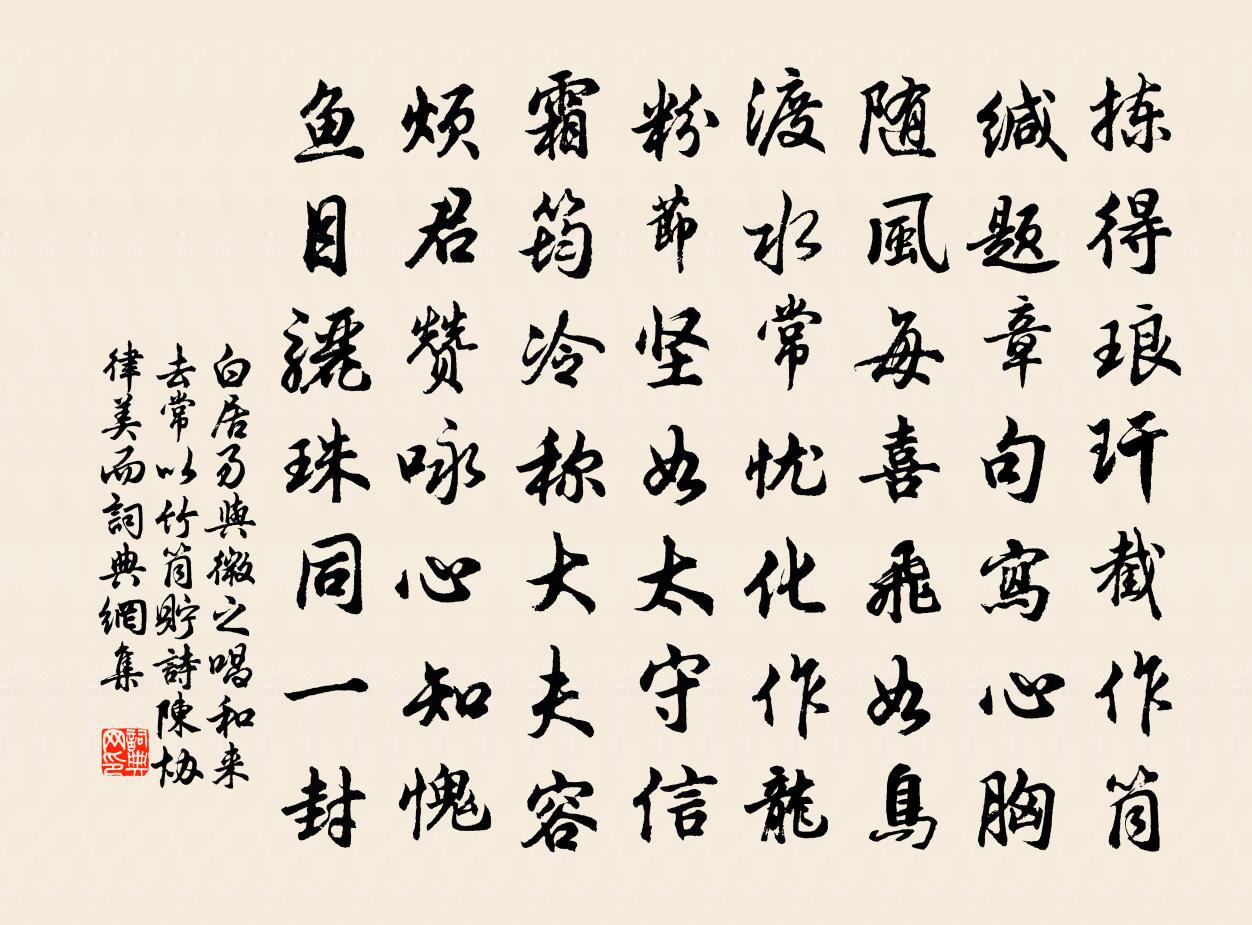 拣得琅玕截作筒
缄题章句写心胸
随風每喜飛如鳥
渡水常忧化作龍
粉節坚如太守信
霜筠冷称大夫容
烦君赞咏心知愧
鱼目骊珠同一封
白居易與微之唱和来
去常以竹筒貯詩陳協
律美而詞典網集
詞典网印